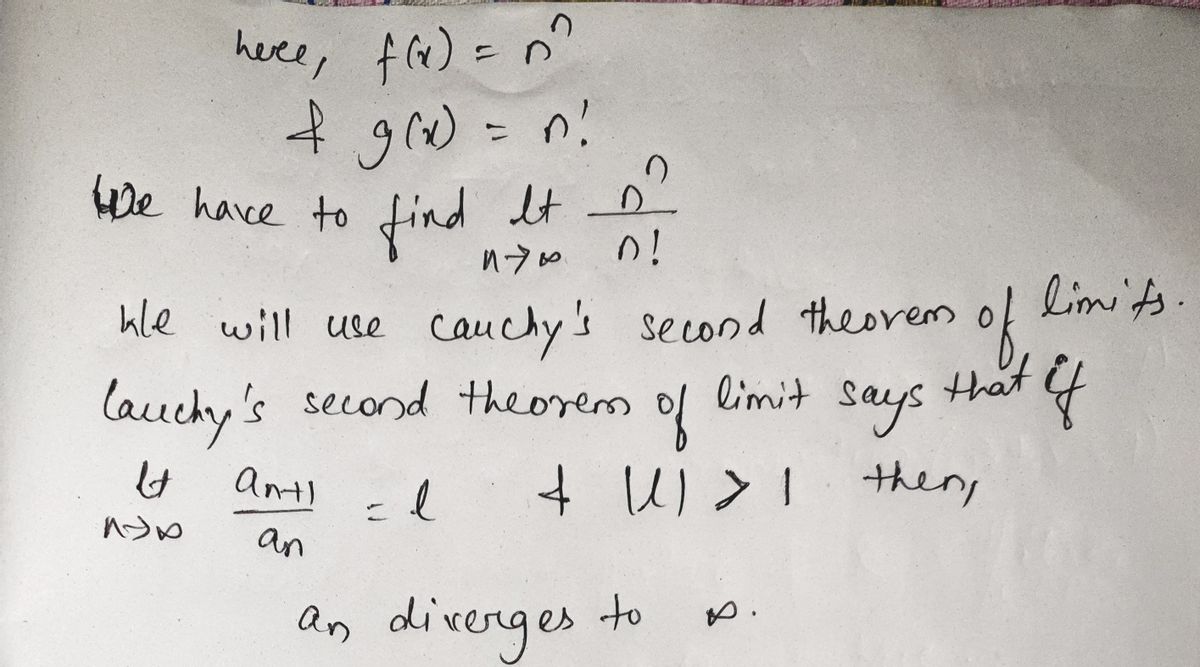 here, f(x) = n^n
& g(x) = n!
We have to find lt n→∞ n^n / n!
We will use Cauchy's second theorem of limits.
Cauchy's second theorem of limit says that if
lt n→∞ a_{n+1} / a_n = l & |l| > 1 then,
a_n diverges to ∞.